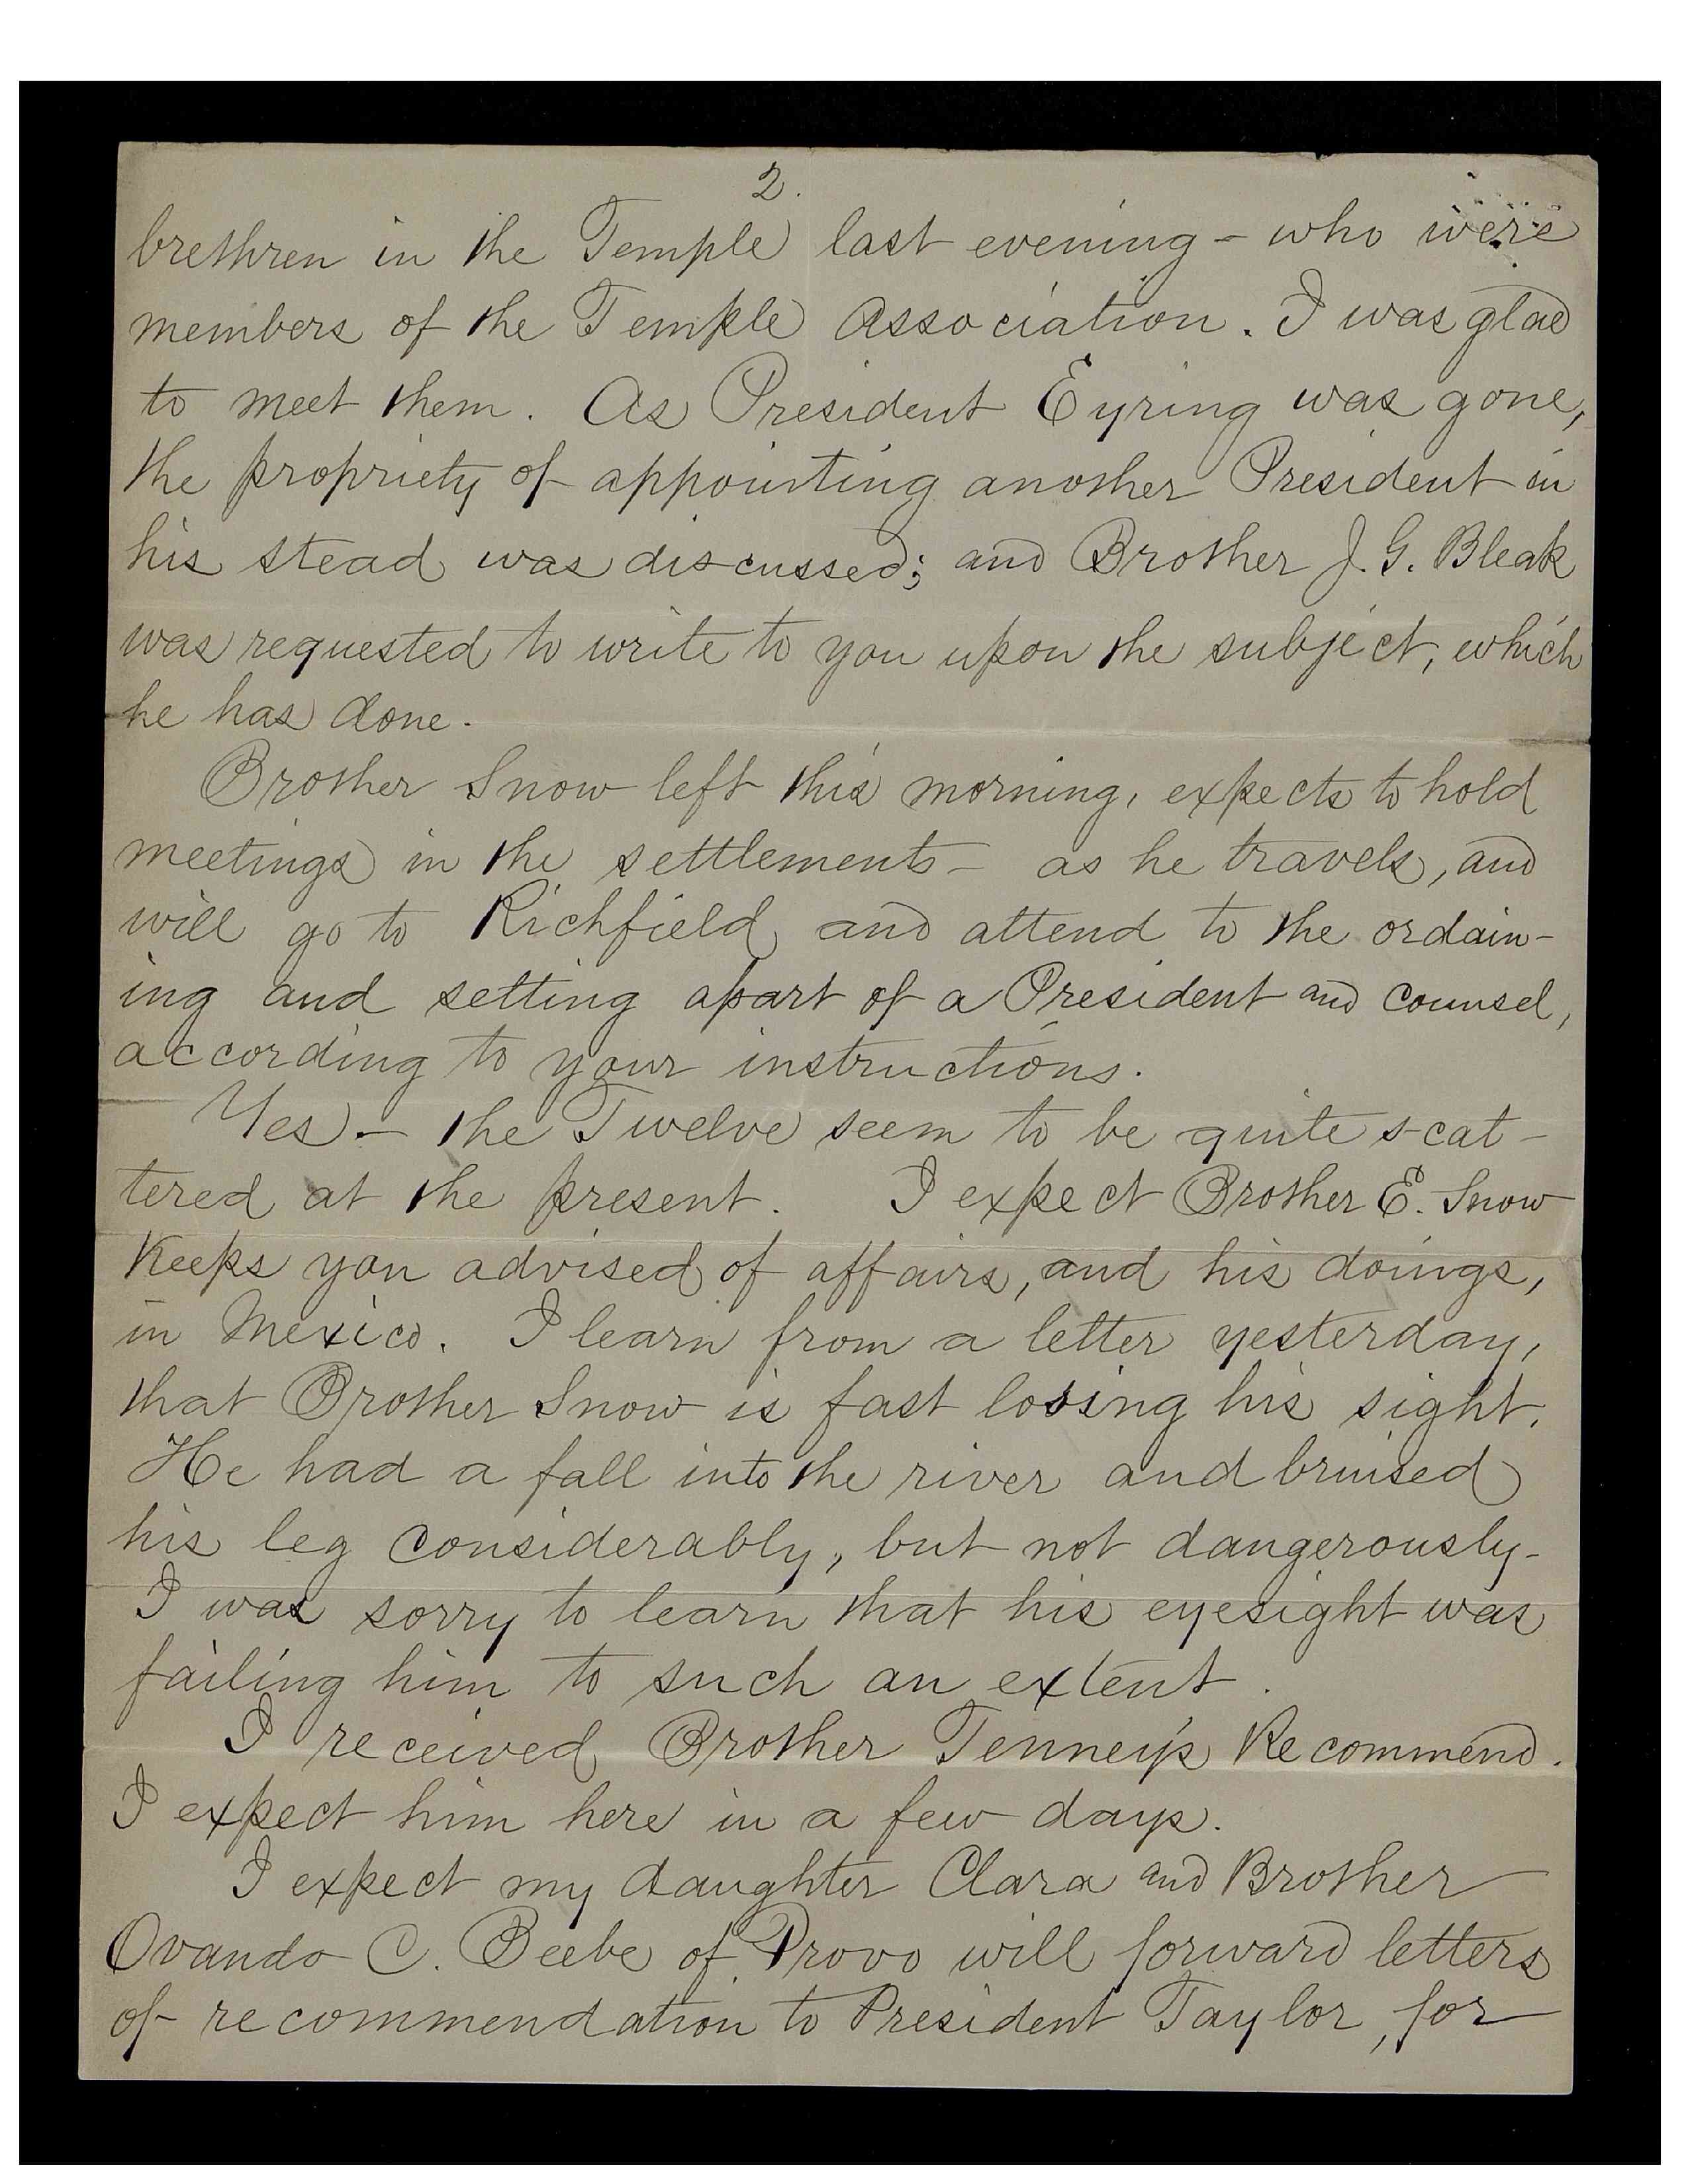 2.
brethren in the Temple last evening - who were
members of the Temple Association. I was glad
to meet them. As President Eyring was gone,
the propriety of appointing another President in
his stead was discussed; and Brother J. G. Bleak
was requested to write to you upon the subject, which
he has done.
Brother Snow left this morning, expects to hold
meetings in the settlements - as he travels, and
will go to Richfield and attend to the ordain-
ing and setting apart of a President and counsel,
according to your instructions.
Yes - the Twelve seem to be quite scat-
tered at the present. I expect Brother E. Snow
keeps you advised of affairs, and his doings,
in Mexico. I learn from a letter yesterday,
that Brother Snow is fast losing his sight.
He had a fall into the river and bruised
his leg considerably, but not dangerously-
I was sorry to learn that his eyesight was
failing him to such an extent.
I received Brother Tenney's Recommend.
I expect him here in a few days.
I expect my daughter Clara and Brother
Ovando C. Beebe of Provo will forward letters
of recommendation to President Taylor, for